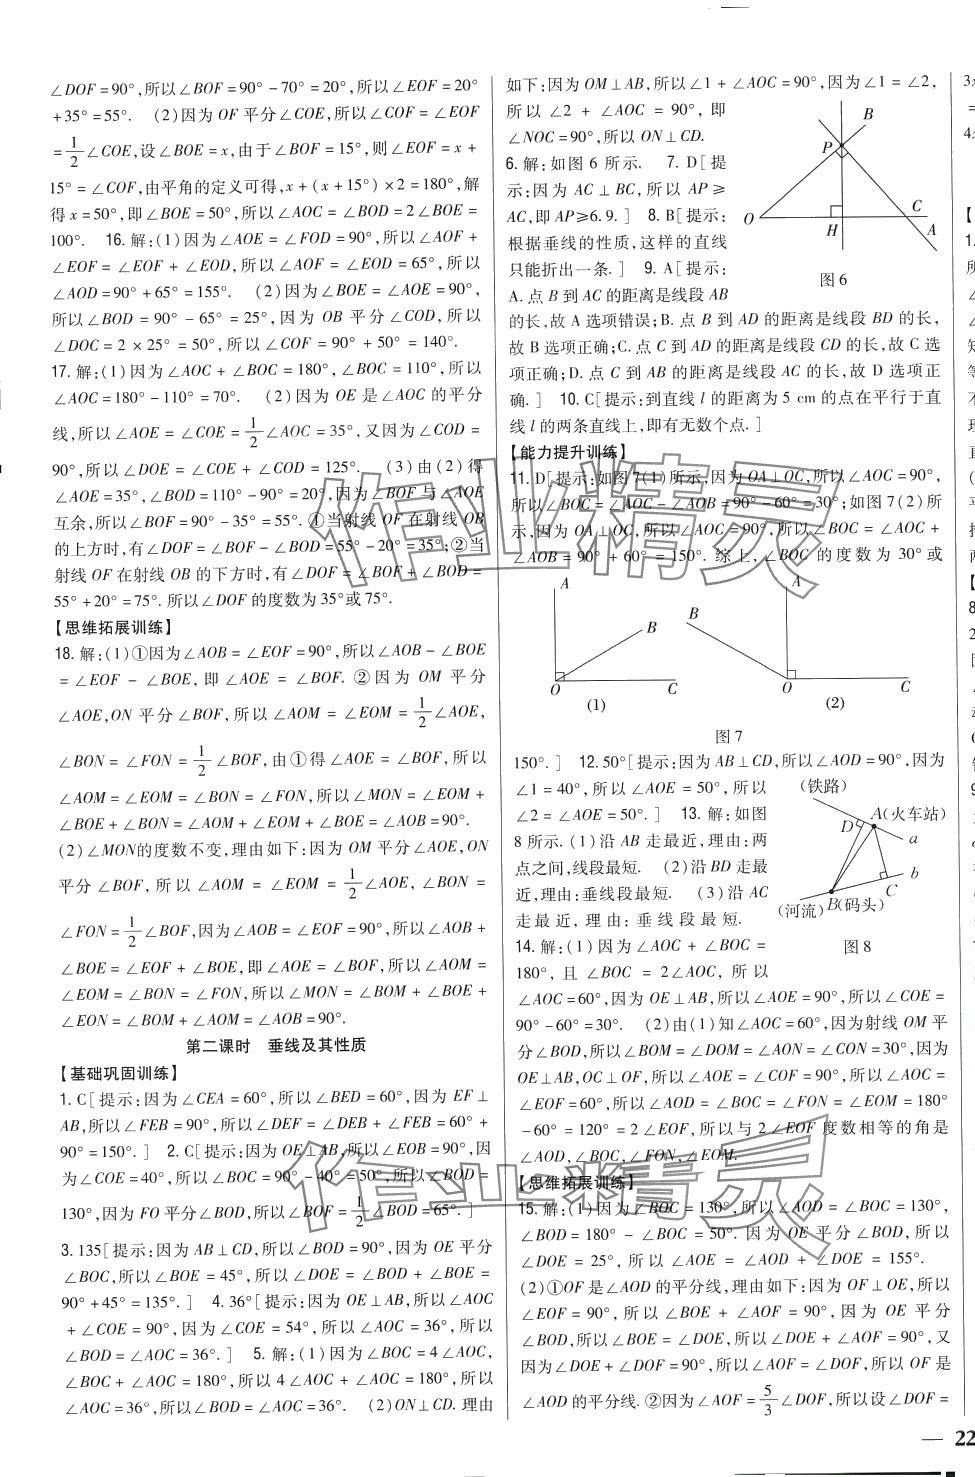 ∠DOF=90°,所以∠BOF=90°-70°=20°,所以∠EOF=20°
+35°=55°. (2)因为OF平分∠COE,所以∠COF=∠EOF
=1/2∠COE,设∠BOE=x,由于∠BOF=15°,则∠EOF=x+
15°=∠COF,由平角的定义可得,x+(x+15°)×2=180°,解
得x=50°,即∠BOE=50°,所以∠AOC=∠BOD=2∠BOE=
100°. 16.解:(1)因为∠AOE=∠FOD=90°,所以∠AOF+
∠EOF=∠EOF+∠EOD,所以∠AOF=∠EOD=65°,所以
∠AOD=90°+65°=155°. (2)因为∠BOE=∠AOE=90°,
所以∠BOD=90°-65°=25°,因为OB平分∠COD,所以
∠DOC=2×25°=50°,所以∠COF=90°+50°=140°.
17.解:(1)因为∠AOC+∠BOC=180°,∠BOC=110°,所以
∠AOC=180°-110°=70°. (2)因为OE是∠AOC的平分
线,所以∠AOE=∠COE=1/2∠AOC=35°,又因为∠COD=
90°,所以∠DOE=∠COE+∠COD=125°. (3)由(2)得
∠AOE=35°,∠BOD=110°-90°=20°,因为∠BOF与∠AOE
互余,所以∠BOF=90°-35°=55°.①当射线OF在射线OB
的上方时,有∠DOF=∠BOF-∠BOD=55°-20°=35°;②当
射线OF在射线OB的下方时,有∠DOF=∠BOF+∠BOD=
55°+20°=75°.所以∠DOF的度数为35°或75°.
【思维拓展训练】
18.解:(1)①因为∠AOB=∠EOF=90°,所以∠AOB-∠BOE
=∠EOF-∠BOE,即∠AOE=∠BOF.②因为OM平分
∠AOE,ON平分∠BOF,所以∠AOM=∠EOM=1/2∠AOE,
∠BON=∠FON=1/2∠BOF,由①得∠AOE=∠BOF,所以
∠AOM=∠EOM=∠BON=∠FON,所以∠MON=∠EOM+
∠BOE+∠BON=∠AOM+∠EOM+∠BOE=∠AOB=90°.
(2)∠MON的度数不变,理由如下:因为OM平分∠AOE,ON
平分∠BOF,所以∠AOM=∠EOM=1/2∠AOE,∠BON=
∠FON=1/2∠BOF,因为∠AOB=∠EOF=90°,所以∠AOB+
∠BOE=∠EOF+∠BOE,即∠AOE=∠BOF,所以∠AOM=
∠EOM=∠BON=∠FON,所以∠MON=∠BOM+∠BOE+
∠EON=∠BOM+∠AOM=∠AOB=90°.
第二课时 垂线及其性质
【基础巩固训练】
1.C[提示:因为∠CEA=60°,所以∠BED=60°,因为EF⊥
AB,所以∠FEB=90°,所以∠DEF=∠DEB+∠FEB=60°+
90°=150°.] 2.C[提示:因为OE⊥AB,所以∠EOB=90°,因
为∠COE=40°,所以∠BOC=90°-40°=50°,所以∠BOD=
130°,因为FO平分∠BOD,所以∠BOF=1/2∠BOD=65°.]
3.135[提示:因为AB⊥CD,所以∠BOD=90°,因为OE平分
∠BOC,所以∠BOE=45°,所以∠DOE=∠BOD+∠BOE=
90°+45°=135°.] 4.36°[提示:因为OE⊥AB,所以∠AOC
+∠COE=90°,因为∠COE=54°,所以∠AOC=36°,所以
∠BOD=∠AOC=36°.] 5.解:(1)因为∠BOC=4∠AOC,
∠BOC+∠AOC=180°,所以4∠AOC+∠AOC=180°,所以
∠AOC=36°,所以∠BOD=∠AOC=36°. (2)ON⊥CD.理由
如下:因为OM⊥AB,所以∠1+∠AOC=90°,因为∠1=∠2,
所以∠2+∠AOC=90°,即
∠NOC=90°,所以ON⊥CD.
6.解:如图6所示. 7.D[提
示:因为AC⊥BC,所以AP≥
AC,即AP≥6.9.] 8.B[提示:
根据垂线的性质,这样的直线
只能折出一条.] 9.A[提示:
B
P
O
H
C
A
图6
A.点B到AC的距离是线段AB
的长,故A选项错误;B.点B到AD的距离是线段BD的长,
故B选项正确;C.点C到AD的距离是线段CD的长,故C选
项正确;D.点C到AB的距离是线段AC的长,故D选项正
确.] 10.C[提示:到直线l的距离为5 cm的点在平行于直
线l的两条直线上,即有无数个点.]
【能力提升训练】
11.D[提示:如图7(1)所示,因为OA⊥OC,所以∠AOC=90°,
所以∠BOC=∠AOC-∠AOB=90°-60°=30°;如图7(2)所
示,因为OA⊥OC,所以∠AOC=90°,所以∠BOC=∠AOC+
∠AOB=90°+60°=150°.综上,∠BOC的度数为30°或
A
B
O
C
(1)
A
B
O
C
(2)
图7
150°.] 12.50°[提示:因为AB⊥CD,所以∠AOD=90°,因为
∠1=40°,所以∠AOE=50°,所以
∠2=∠AOE=50°.] 13.解:如图
8所示.(1)沿AB走最近,理由:两
点之间,线段最短. (2)沿BD走最
近,理由:垂线段最短. (3)沿AC
走最近,理由:垂线段最短.
(铁路)
D
A(火车站)
a
b
C
(河流)
B(码头)
图8
14.解:(1)因为∠AOC+∠BOC=
180°,且∠BOC=2∠AOC,所以
∠AOC=60°,因为OE⊥AB,所以∠AOE=90°,所以∠COE=
90°-60°=30°. (2)由(1)知∠AOC=60°,因为射线OM平
分∠BOD,所以∠BOM=∠DOM=∠AON=∠CON=30°,因为
OE⊥AB,OC⊥OF,所以∠AOE=∠COF=90°,所以∠AOC=
∠EOF=60°,所以∠AOD=∠BOC=∠FON=∠EOM=180°
-60°=120°=2∠EOF,所以与2∠EOF度数相等的角是
∠AOD,∠BOC,∠FON,∠EOM.
【思维拓展训练】
15.解:(1)因为∠BOC=130°,所以∠AOD=∠BOC=130°,
∠BOD=180°-∠BOC=50°.因为OE平分∠BOD,所以
∠DOE=25°,所以∠AOE=∠AOD+∠DOE=155°.
(2)①OF是∠AOD的平分线,理由如下:因为OF⊥OE,所以
∠EOF=90°,所以∠BOE+∠AOF=90°,因为OE平分
∠BOD,所以∠BOE=∠DOE,所以∠DOE+∠AOF=90°,又
因为∠DOE+∠DOF=90°,所以∠AOF=∠DOF,所以OF是
∠AOD的平分线.②因为∠AOF=5/3∠DOF,所以设∠DOF=
22
作业精灵
作业精灵